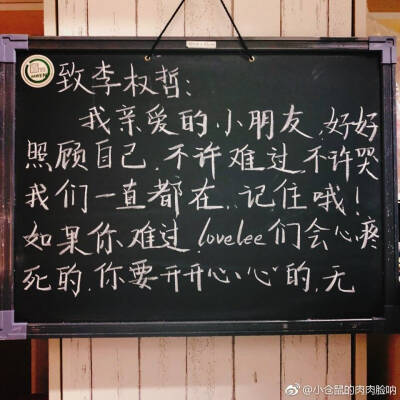 致李权哲:
我亲爱的小朋友,好好
照顾自己.不许难过,不许哭
我们一直都在,记住哦!
如果你难过,lovelee们会心疼
死的,你要开开心心的,无
@小仓鼠的肉肉脸呐